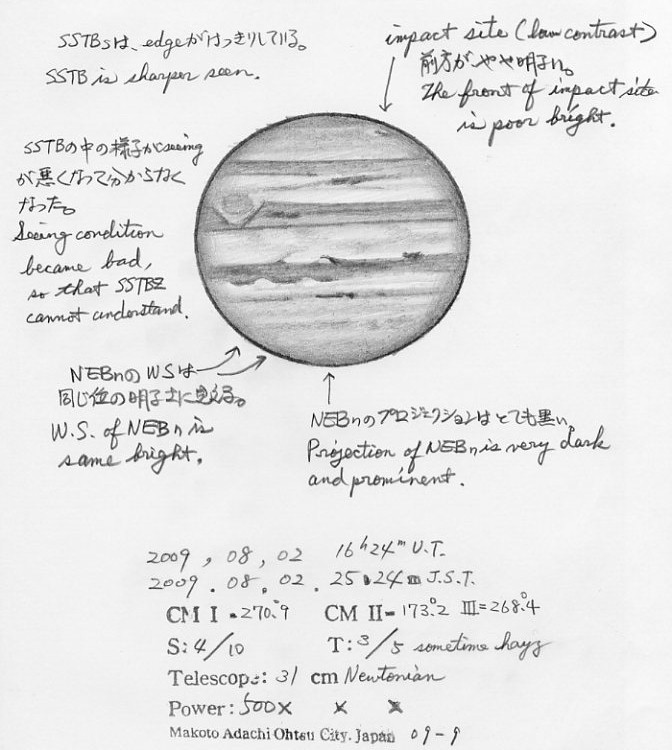 SSTBsは、edgeがはっきりしている。
SSTB is sharper seen.
impact site (low contrast)
前方がやや明るい。
The front of impact site
is poor bright.
SSTBの中の様子がseeing
が悪くなって分からなく
なった。
Seeing condition
became bad,
so that SSTBZ
cannot understand.
NEBnのWSは
同じ位の明るさに見える。
W.S. of NEBn is
same bright.
NEBnのプロジェクションはとても黒い。
Projection of NEBn is very dark
and prominent.
2009, 08, 02 16h24m U.T.
2009. 08. 02. 25 24m J.S.T.
CM I = 270.°9 CM II = 173.°2 III = 268.°4
S: 4/10 T: 3/5 sometime hayz
Telescope: 31 cm Newtonian
Power: 500× × ×
Makoto Adachi Ohtsu City. Japan 09-9